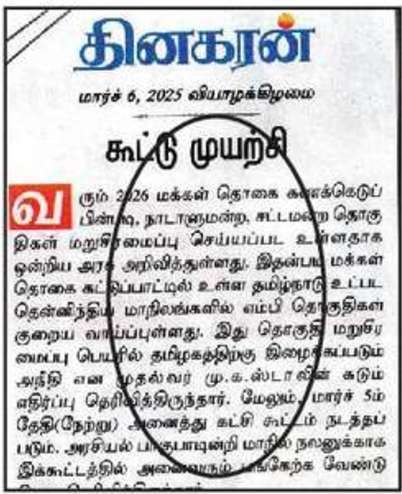 தினகரன்
மார்ச் 6, 2025 வியாழக்கிழமை
கூட்டு முயற்சி
வரும் 2026 மக்கள் தொகை கணக்கெடுப்
பின்படி, நாடாளுமன்ற, சட்டமன்ற தொகு
திகள் மறுசீரமைப்பு செய்யப்பட உள்ளதாக
ஒன்றிய அரசு அறிவித்துள்ளது. இதன்படி மக்கள்
தொகை கட்டுப்பாட்டில் உள்ள தமிழ்நாடு உட்பட
தென்னிந்திய மாநிலங்களில் எம்பி தொகுதிகள்
குறைய வாய்ப்புள்ளது. இது தொகுதி மறுசீர
மைப்பு பெயரில் தமிழகத்திற்கு இழைக்கப்படும்
அநீதி என முதல்வர் மு.க.ஸ்டாலின் கடும்
எதிர்ப்பு தெரிவித்திருந்தார். மேலும், மார்ச் 5ம்
தேதி(நேற்று) அனைத்து கட்சி கூட்டம் நடத்தப்
படும். அரசியல் பாகுபாடின்றி மாநில நலனுக்காக
இக்கூட்டத்தில் அனைவரும் பங்கேற்க வேண்டு